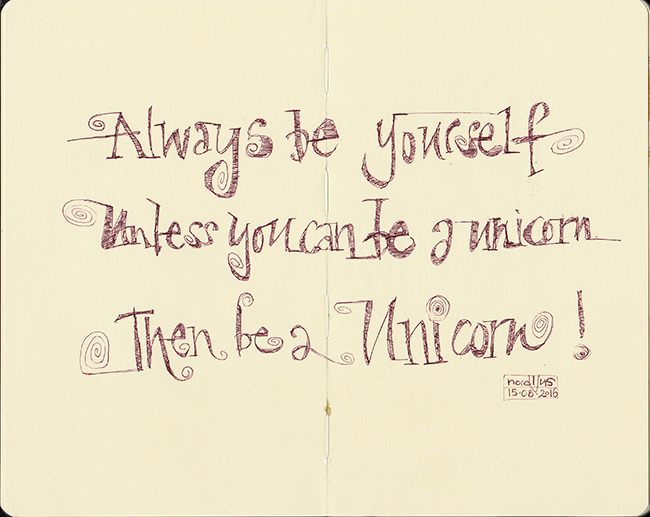 Always be yourself
Unless you can be a unicorn
Then be a Unicorn !
nordljus
15.08.2016